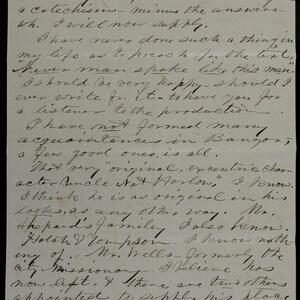 a catechism - minus the answers -
wh. I will now supply.
I have never done such a thing in
my life as to preach from the text,
"Never man spoke like this man."
I should be very happy - should I
ever write fr. it - to have you for
a listener to the production
I have not formed many
acquaintances in Bangor,
a few good ones, is all.
That very original, eccentric char-
acter "Uncle Nat Harlow," I know.
I think he is as original in his
looks, as any other way. Mr.
Shepard's family I also know.
Hatch & Thompson I know noth
ing of. Mr. Wells - formerly the
city missionary I believe has
now left & there are two others
appointed to supply his place